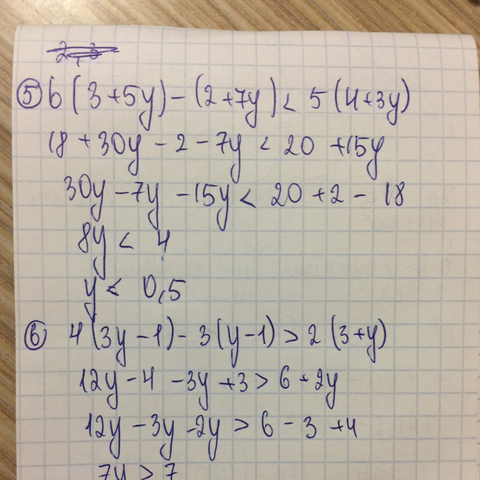 ⑤ 6(3+5y)-(2+7y)< 5(4+3y)
18+30y-2-7y<20+15y
30y-7y-15y<20+2-18
8y<4
y<0,5
⑥ 4(3y-1)-3(y-1)>2(3+y)
12y-4-3y+3>6+2y
12y-3y-2y>6-3+4
7y>7